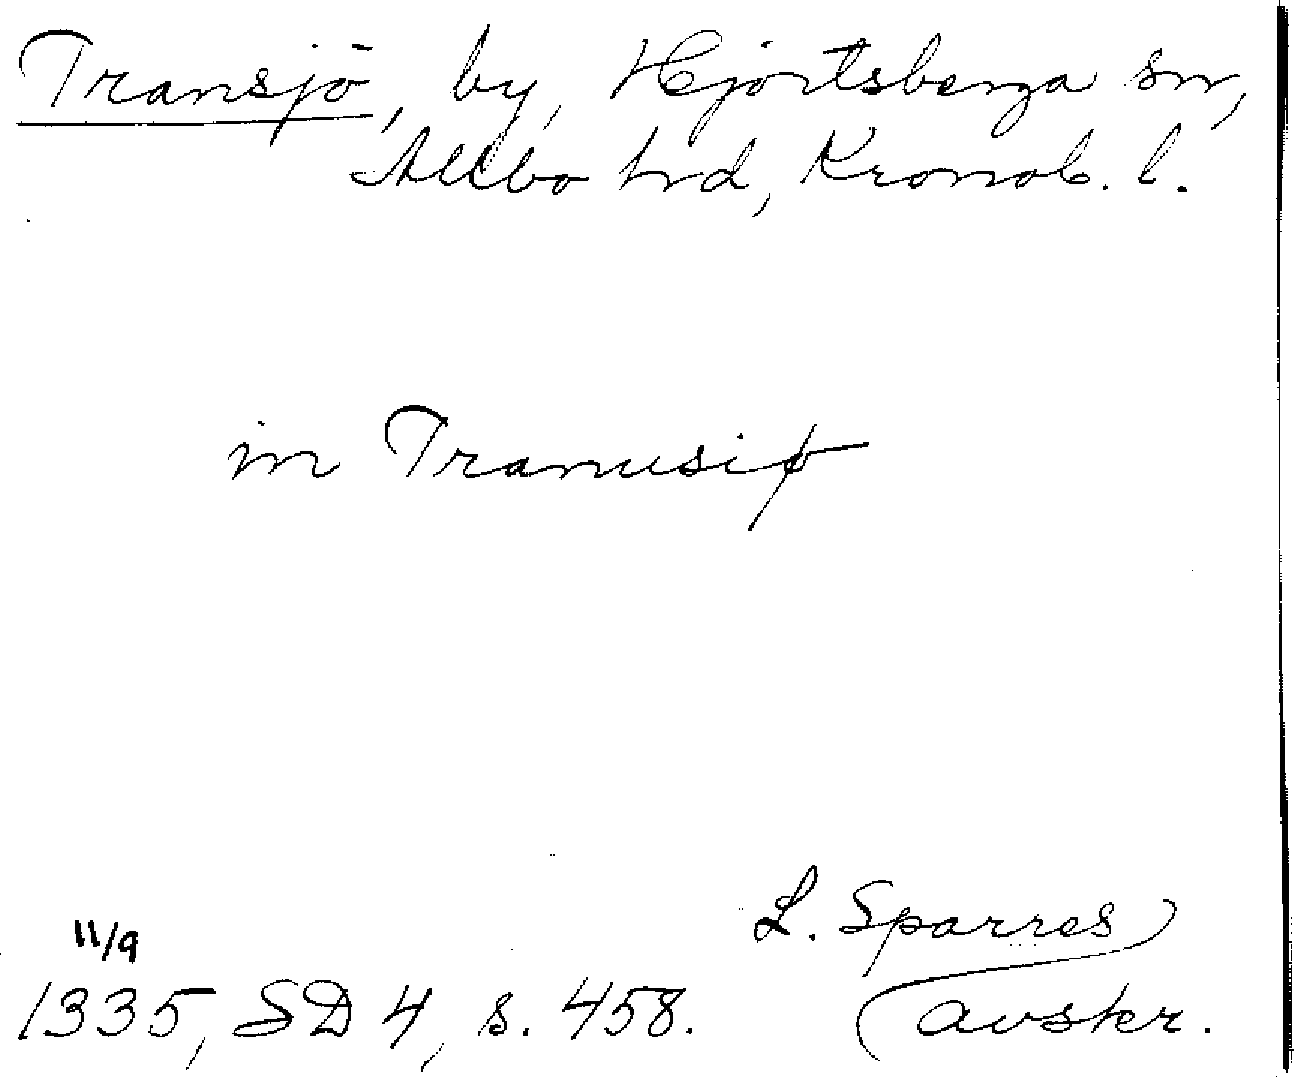 Transjö, by, Hjortsberga sn,
Allbo hrd, Kronob. l.
in Tranusiø
L. Sparres
11/9
1335, SD 4, s. 458.
avskr.